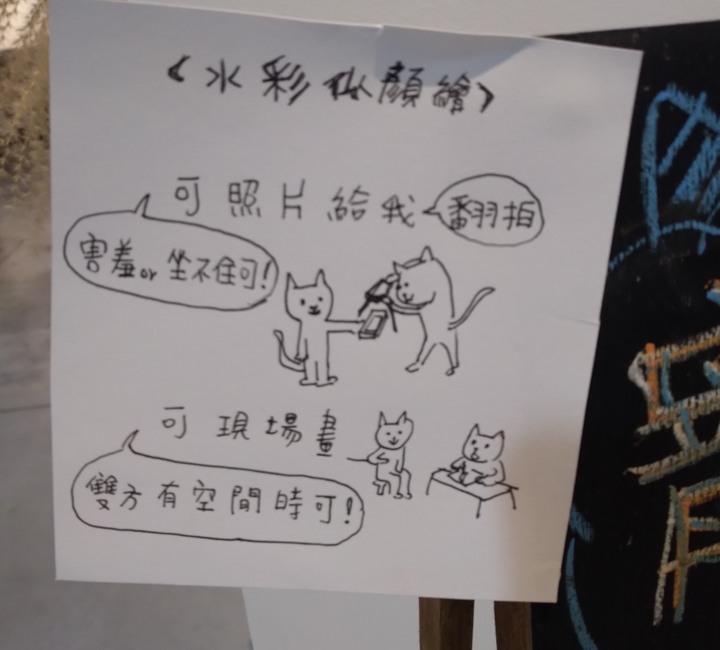 <水彩似顏繪>
可照片給我 翻拍
害羞or坐不住可!
可現場畫
雙方有空間時可!